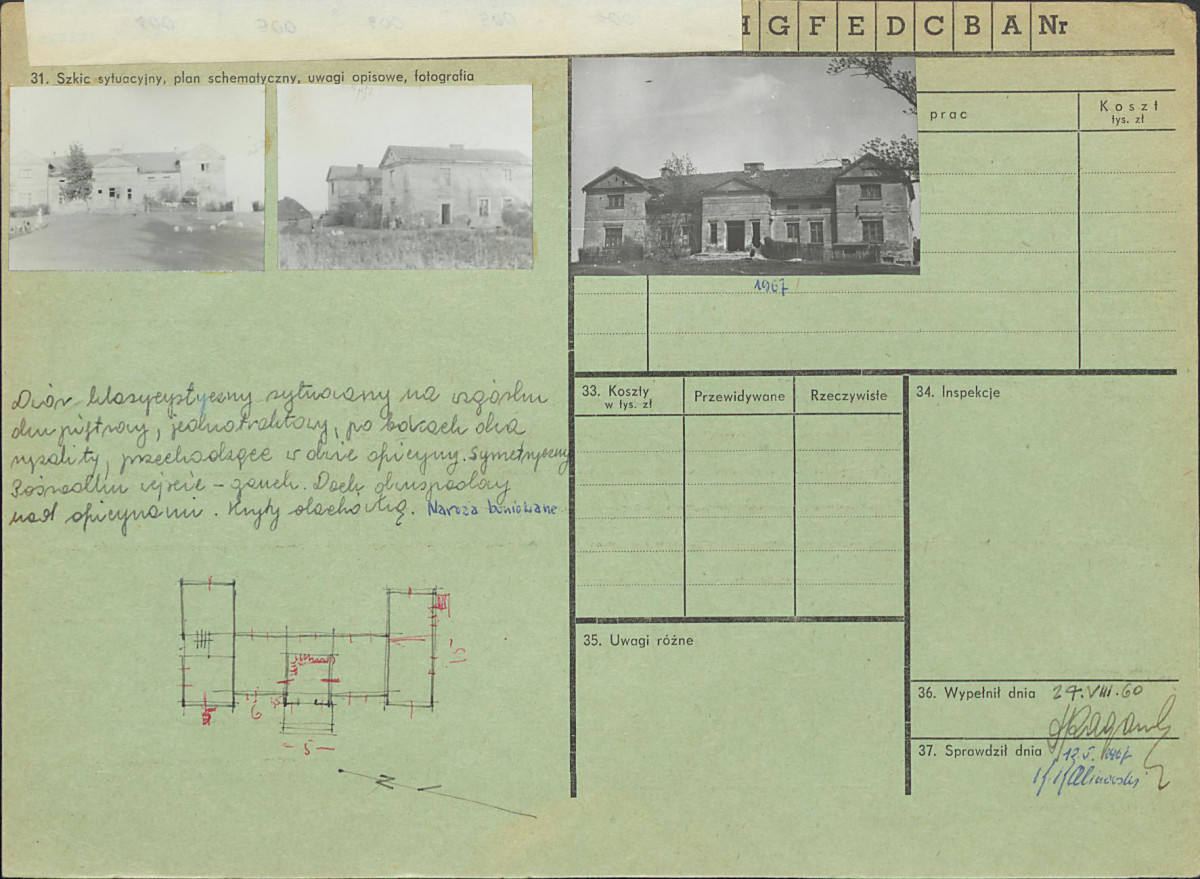 G F E D C B A Nr
31. Szkic sytuacyjny, plan schematyczny, uwagi opisowe, fotografia
prac
Koszt
tys. zł
1967
Dwór klasycystyczny sytuowany na wzgórzu
dwupiętrowy, jednotraktowy, po bokach dwa
ryzality, przechodzące w dwie oficyny. Symetryczny
Pośrodku wejście – ganek. Dach dwuspadowy
nad oficynami. Kryty dachówką. Naroża boniowane
33. Koszty
w tys. zł
Przewidywane
Rzeczywiste
34. Inspekcje
35. Uwagi różne
6
15
– 5 –
N
36. Wypełnił dnia 24.VIII.60
37. Sprawdził dnia 12.5.1967
Kalinowski